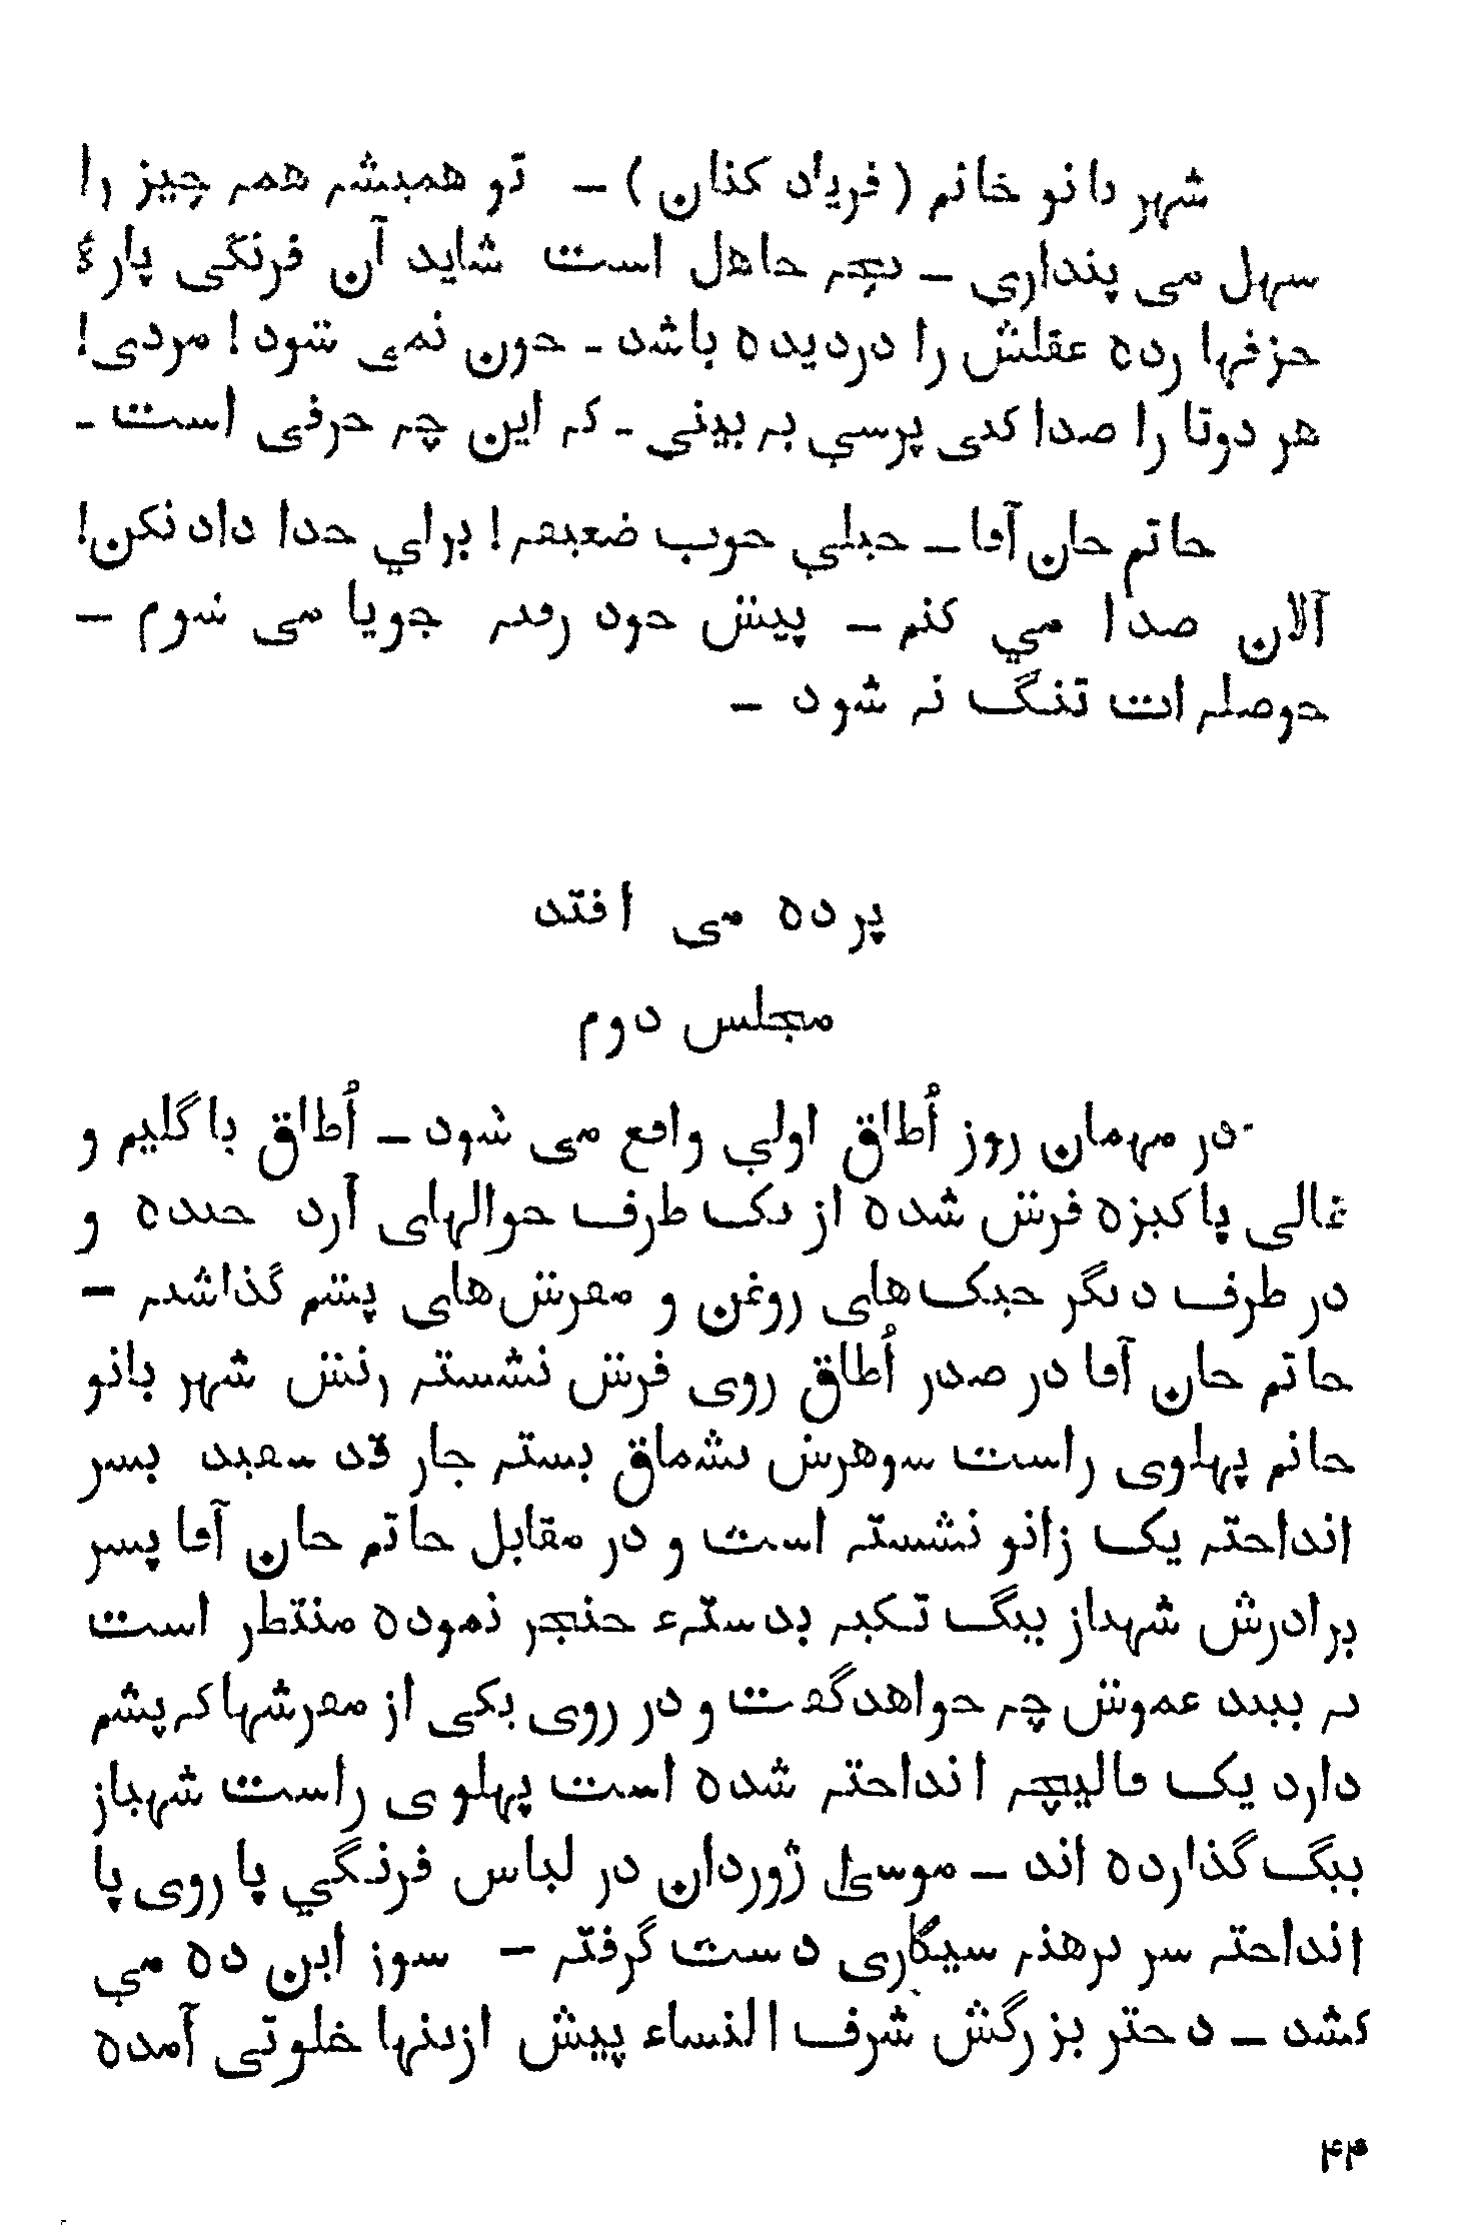 شهر بانو خانم (فریاد کنان) – تو همیشه همه چیز را
سهل می پنداري – بچه جاهل است شاید آن فرنگی پارهٔ
حرفها زده عقلش را دزدیده باشد - چون نمی شود! مردی!
هر دوتا را صدا کنی پرسي به بیني - که این چه حرفی است -
حاتم خان آقا – خیلي خوب ضعیفه! براي خدا داد نکن!
آلان صدا مي کنم – پیش خود رفته جویا می شوم –
حوصله ات تنگ نه شود –
پرده می افتد
مجلس دوم
در مهمان روز أُطاق اولي واقع می شود – أُطاق با گلیم و
غالی پاکیزه فرش شده از یک طرف جوالهای آرد چیده و
در طرف دیگر خیک‌های روغن و مفرش‌های پشم گذاشته –
حاتم خان آقا در صدر أُطاق روی فرش نشسته زنش شهر بانو
خانم پهلوی راست شوهرش یشماق بسته چار قد سفید بسر
انداخته یک زانو نشسته است و در مقابل حاتم خان آقا پسر
برادرش شهباز بیگ تکیه بدستهء خنجر نموده منتظر است
به بیند عموش چه خواهد گفت و در روی یکی از مفرشها که پشم
دارد یک قالیچه انداخته شده است پهلوی راست شهباز
بیگ گذارده اند – موسیٰ ژوردان در لباس فرنگي پا روی پا
انداخته سر برهنه سیگاری دست گرفته – سوز این ده می
کشد – دختر بزرگش شرف النساء پیش ازینها خلوتی آمده
۴۳